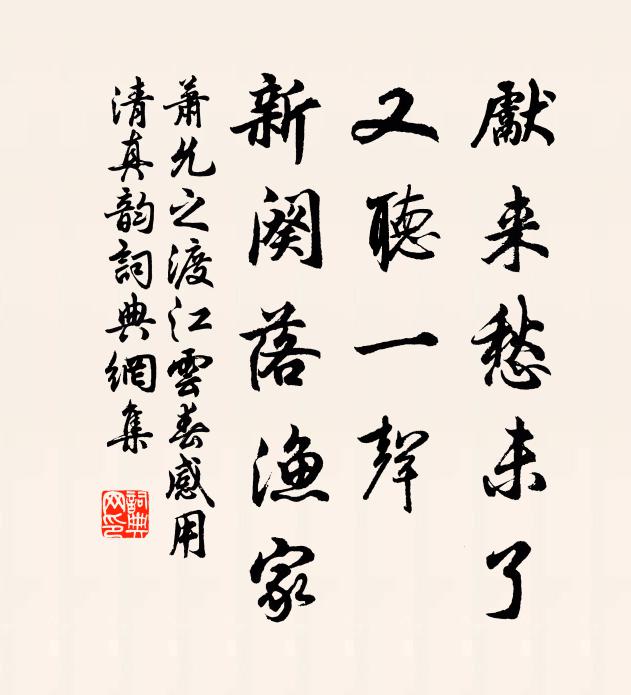 獻来愁未了
又聽一聲
新闋落渔家
蕭允之渡江雲春感用
清真韵詞典網集
詞典
网印